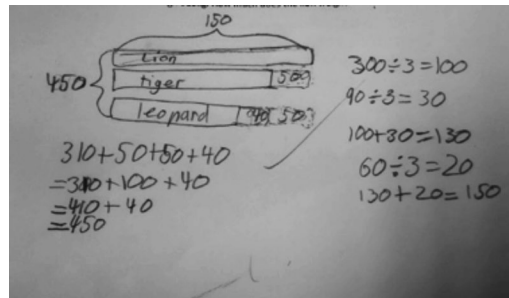 150
Lion
450
tiger 50
leopard 40 50
310+50+50+40
=310+100+40
=410+40
=450
300÷3=100
90÷3=30
100+30=130
60÷3=20
130+20=150